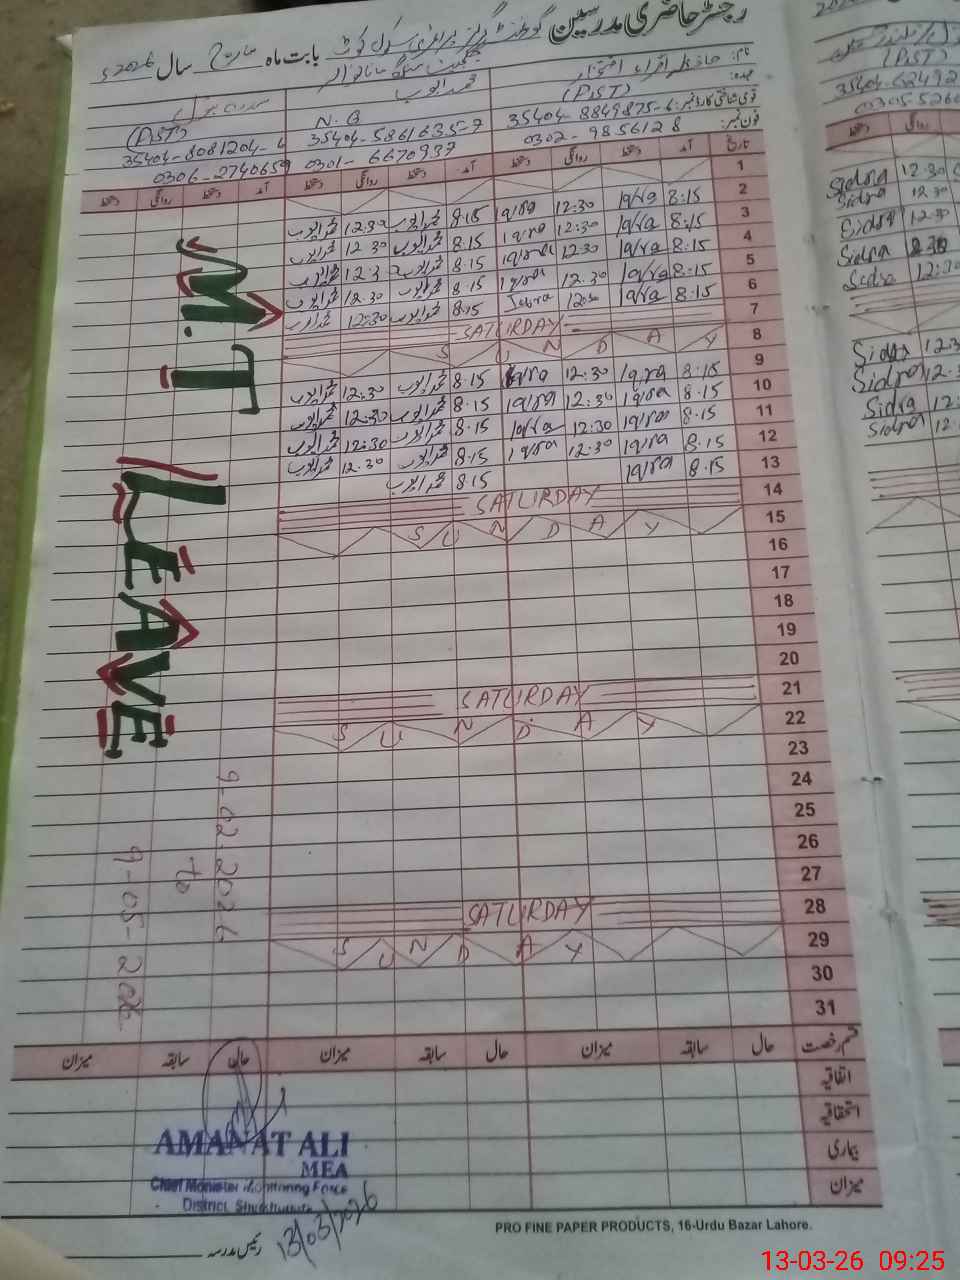 رجسٹر حاضری مدرسین گورنمنٹ گرلز پرائمری سکول کوٹ بابت ماہ مارچ سال 2026ء
نام: حافظہ اقراء افتخار محمد ایوب
عہدہ: (PST) N.Q (PST)
قومی شناختی کارڈ نمبر: 35404-8849875-6 35404-5861635-9 35404-8081204-4
فون نمبر: 0302-9856128 0301-6670937 0306-2740659
تاریخ آمد دستخط روانگی دستخط آمد دستخط روانگی دستخط آمد دستخط روانگی دستخط
1
2 8:15 Iqra 12:30 Iqra 8.15 محمد ایوب 12.30 محمد ایوب
3 8:15 Iqra 12:30 Iqra 8.15 محمد ایوب 12.30 محمد ایوب
4 8:15 Iqra 12:30 Iqra 8.15 محمد ایوب 12.3 محمد ایوب
5 8:15 Iqra 12.30 Iqra 8.15 محمد ایوب 12.30 محمد ایوب
6 8:15 Iqra 12:30 8.15 محمد ایوب 12:30 محمد ایوب
7 SATURDAY
8 SUNDAY
9 8:15 Iqra 12:30 Iqra 8.15 محمد ایوب 12.30 محمد ایوب
10 8:15 Iqra 12:30 Iqra 8.15 محمد ایوب 12:30 محمد ایوب
11 8:15 Iqra 12:30 Iqra 8.15 محمد ایوب 12:30 محمد ایوب
12 8:15 Iqra 12:30 Iqra 8.15 محمد ایوب 12.30 محمد ایوب
13 8:15 Iqra 8.15 محمد ایوب
14 SATURDAY
15 SUNDAY
16
17
18
19
20
21 SATURDAY
22 SUNDAY
23
24
25
26
27
28 SATURDAY
29 SUNDAY
30
31
M.T LEAVE
9-02-2026
to
9-05-2026
قسم رخصت حال سابقہ میزان حال سابقہ میزان حال سابقہ میزان
اتفاقیہ
استحقاقیہ
بیماری
میزان
AMANAT ALI
MEA
Chief Minister Monitoring Force
District Sheikhupura
13/03/2026
رئیس مدرسہ
PRO FINE PAPER PRODUCTS, 16-Urdu Bazar Lahore.
(PST)
35404-62492
0305-5260
دستخط روانگی
Sidra 12.30
Sidra 12.30
Sidra 12.30
Sidra 12.30
Sidra 12:30
Sidra 12.3
Sidra 12.
Sidra 12:
Sidra 12
13-03-26 09:25